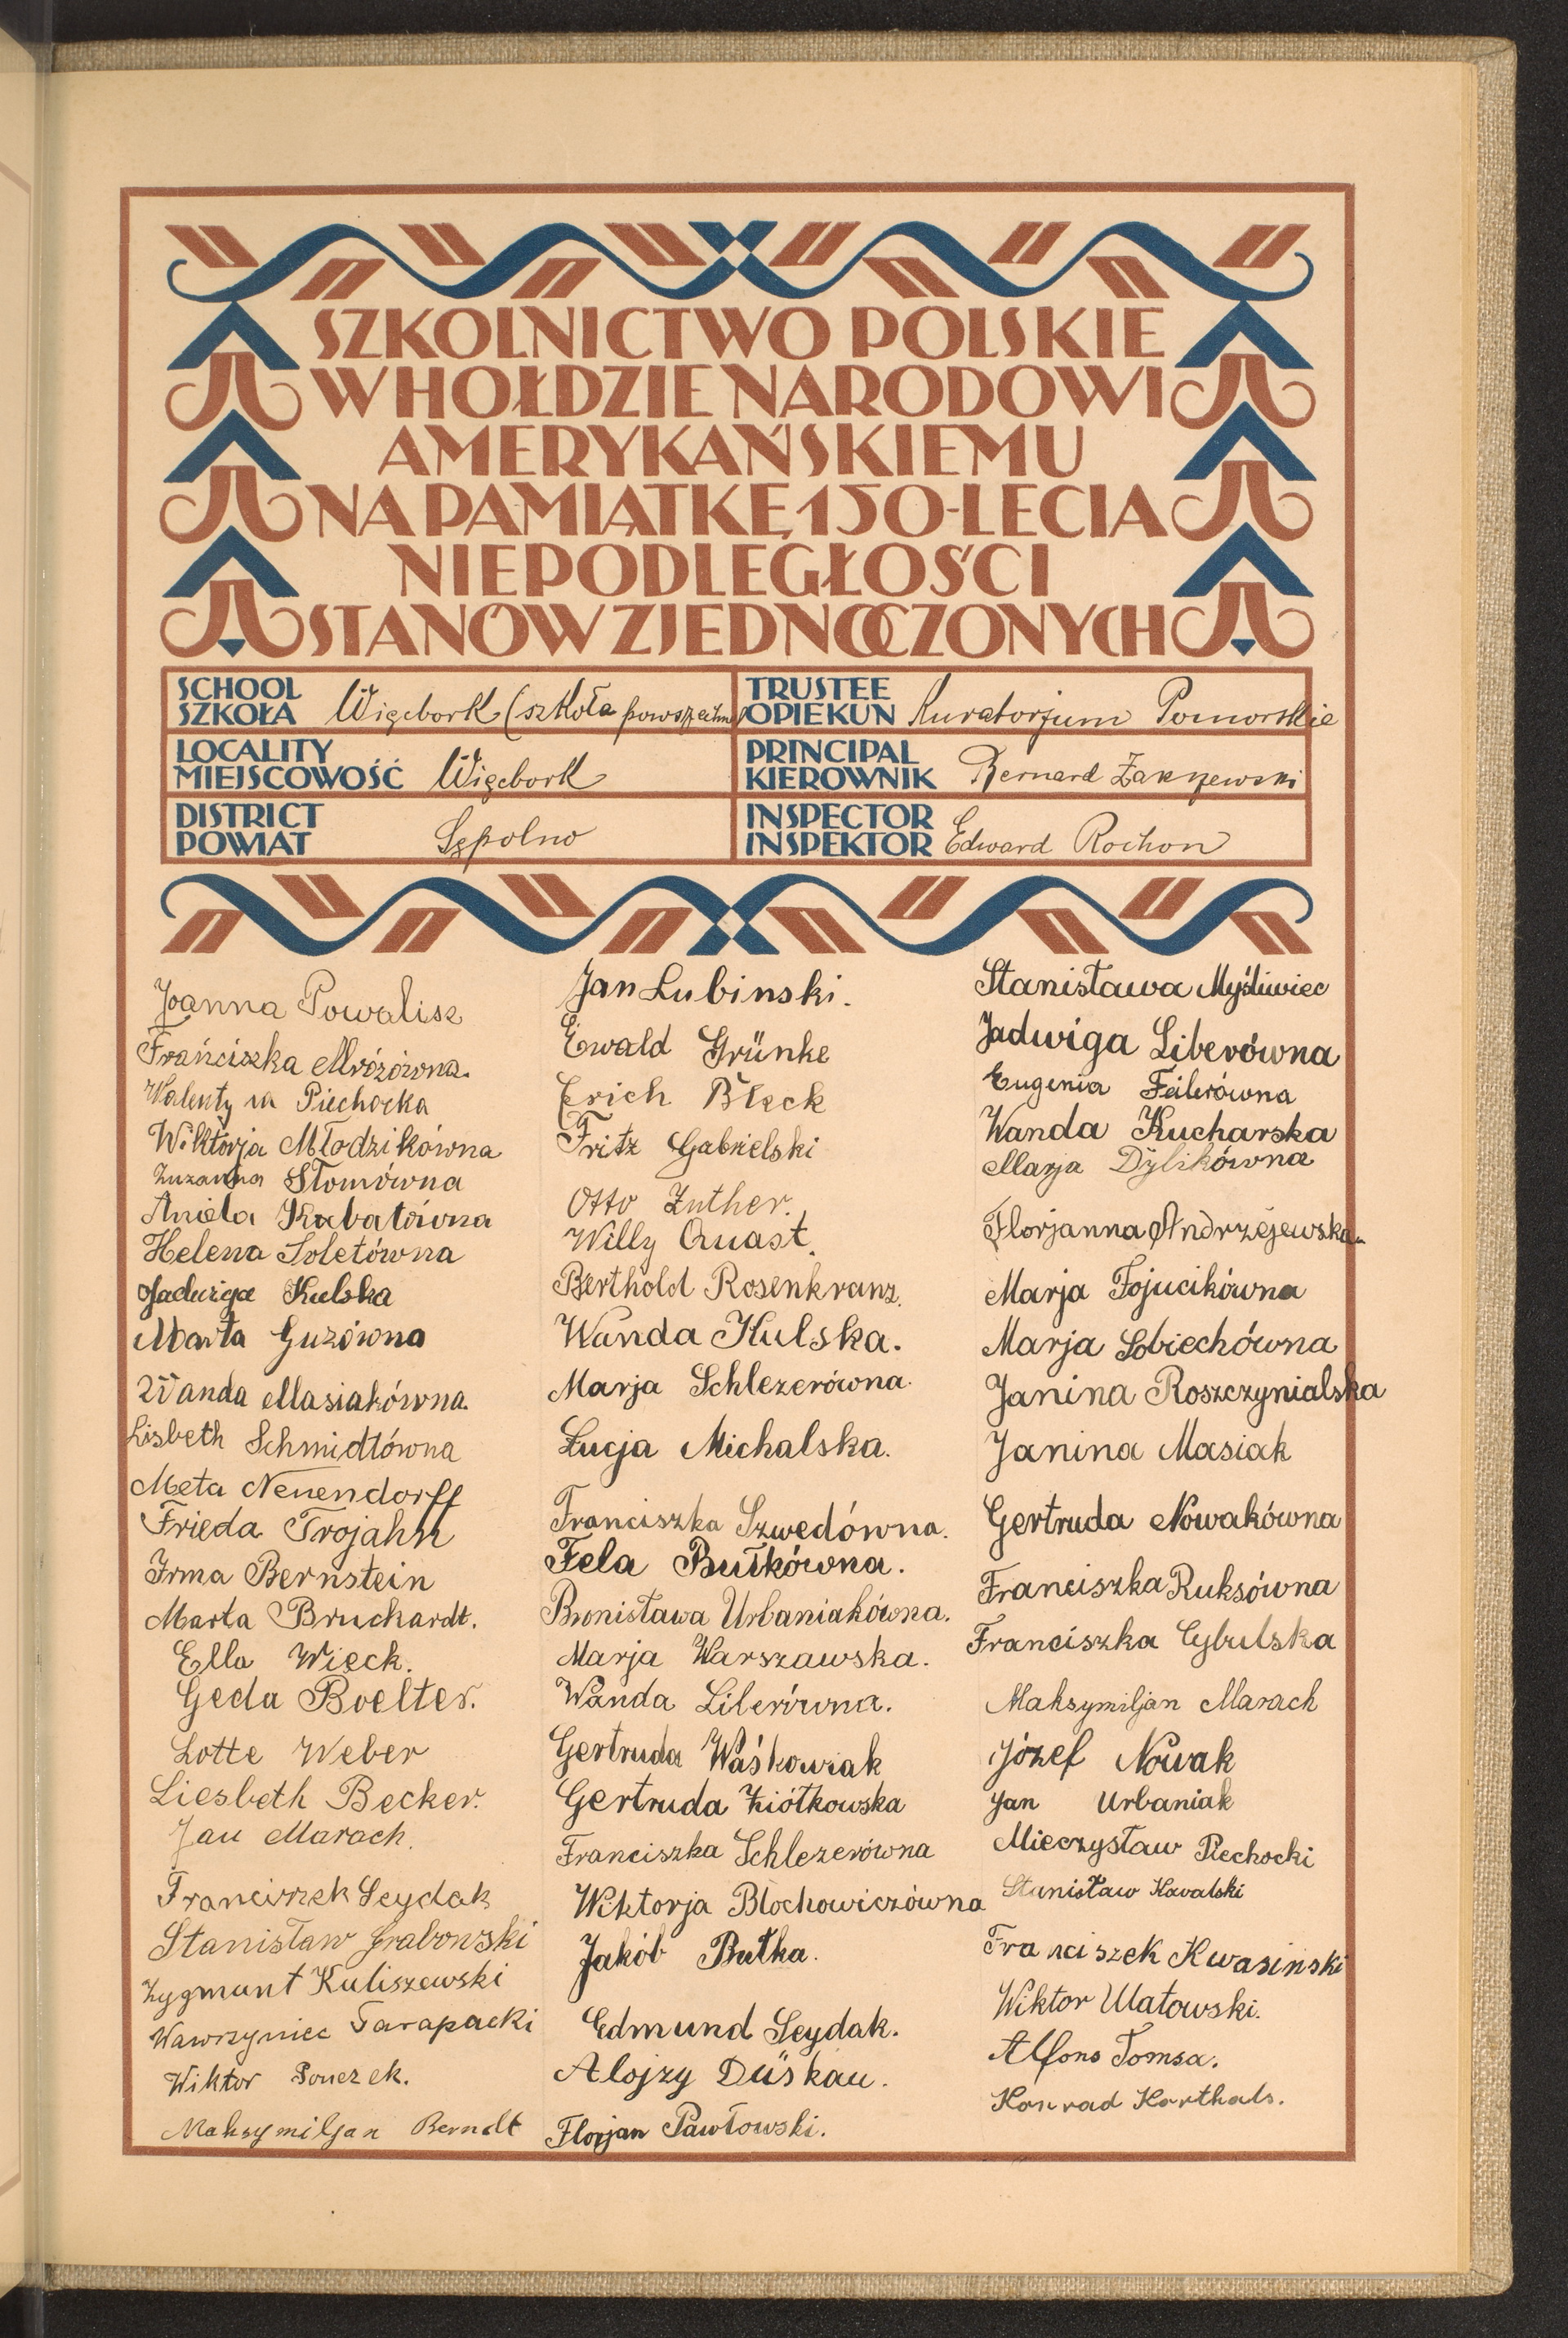 SZKOLNICTWO POLSKIE
W HOŁDZIE NARODOWI
AMERYKAŃSKIEMU
NA PAMIĄTKĘ 150-LECIA
NIEPODLEGŁOŚCI
STANÓW ZJEDNOCZONYCH
SCHOOL
SZKOŁA Więcbork (szkoła powszechna)
TRUSTEE
OPIEKUN Kuratorjum Pomorskie
LOCALITY
MIEJSCOWOŚĆ Więcbork
PRINCIPAL
KIEROWNIK Bernard Zakrzewski
DISTRICT
POWIAT Sępolno
INSPECTOR
INSPEKTOR Edward Rochon
Joanna Powalisz
Franciszka Mrózówna.
Walentyna Piechocka
Wiktorja Młodzikówna
Zuzanna Słomówna
Aniela Kubatówna
Helena Soletówna
Jadwiga Kulska
Marta Guzówna
Wanda Masiakówna.
Lisbeth Schmidtówna
Meta Neuendorff
Frieda Trojahn
Irma Bernstein
Marta Bruchardt.
Ella Wieck.
Geda Boelter.
Lotte Weber
Liesbeth Becker.
Jan Marach.
Franciszek Seydak
Stanisław Grabowski
Zygmunt Kuliszewski
Wawrzyniec Tarapacki
Wiktor Sonczek.
Maksymiljan Berndt
Jan Lubinski.
Ewald Grünke
Erich Bleck
Fritz Gabrielski
Otto Zuther.
Willy Quast.
Berthold Rosenkranz.
Wanda Kulska.
Marja Schlezerówna.
Łucja Michalska.
Franciszka Szwedówna.
Fela Butkówna.
Bronisława Urbaniakówna.
Marja Warszawska.
Wanda Liberówna.
Gertruda Waśkowiak
Gertruda Ziółkowska
Franciszka Schlezerówna
Wiktorja Błochowiczówna
Jakób Butka.
Edmund Seydak.
Alojzy Düskau.
Florjan Pawłowski.
Stanisława Myśliwiec
Jadwiga Liberówna
Eugenia Feilerówna
Wanda Kucharska
Marja Dylikówna
Florjanna Andrzejewska
Marja Fojucikówna
Marja Sobiechówna
Janina Roszczynialska
Janina Masiak
Gertruda Nowakówna
Franciszka Ruksówna
Franciszka Cybulska
Maksymiljan Marach
Józef Nowak
Jan Urbaniak
Mieczysław Piechocki
Stanisław Kowalski
Franciszek Kwasinski
Wiktor Ulatowski.
Alfons Tomsa.
Konrad Korthals.